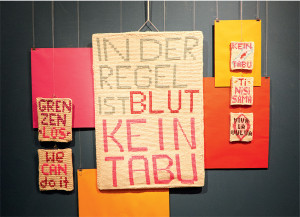 IN DER
REGEL
IST BLUT
KEIN
TABU
GREN
ZEN
LOS
WE
CAN
do it
KEIN
TABU
-TI-
NISI
SAMA
VIVA
LA
VULVA